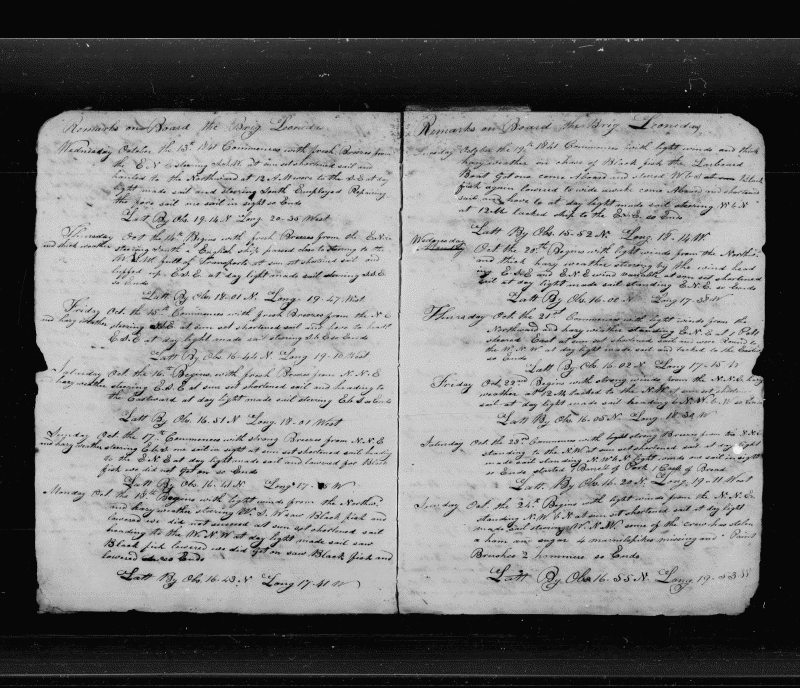 Remarks on Board the Brig Leonedas
Wednesday October the 13th 1841 Commences with fresh Breezes from
the E.N.E steering at sun set shortened sail and
hauled to the Northward at 12 A.M wore to the S.E at day
light made sail and steering South Employed Repairing
the fore sail one sail in sight so Ends
Latt By Obs 19-14 N Long 20-35 West
Thursday Oct the 14th Begins with fresh Breezes from the E.N.E
and thick weather steering South a English ship passed close steering to the
W full of Transports at sun set shortened sail and
luffed up E.S.E at day light made sail steering S.S.E
so Ends
Latt By Obs 18-01 N. Long 19-47 West
Friday Oct. the 15th Commences with fresh Breezes from the N.E
and hazy weather steering at sun set shortened sail and hove to heading
E.S.E at day light made sail steering so Ends
Latt By Obs 16-44 N Long 19-10 West
Saturday Oct the 16th Begins with fresh Breezes from N.N.E
and hazy weather steering E.S.E at sun set shortened sail and heading to
the Eastward at day light made sail steering E.b.S so Ends
Latt By Obs 16.51 N Long. 18-01 West
Sunday Oct the 17th Commences with strong Breezes from N.N.E
and hazy weather steering one sail in sight at sun set shortened sail heading
to the E.N.E at day light made sail and lowered for Black
fish we did not get on so Ends
Latt By Obs 16- N Long 17- W
Monday Oct the 18th Begins with light winds from the Northw.
and hazy weather steering W.S.W saw Black fish and
lowered we did not succeed at sun set shortened sail
heading to the W.N.W at day light made sail saw
Black fish lowered we did get on saw Black fish and
lowered so Ends
Latt By Obs 16-43 N Long 17-41 W
Remarks on Board the Brig Leonedas
Tuesday October the 19th 1841 Commences with light winds and thick
hazy weather in chase of Black fish the Larboard
Boat Got one came Aboard and stoved saw Black
fish again lowered to wide awake came Aboard and shortened
sail and hove to at day light made sail steering N b N
at 12 M tacked ship to the E.N.E so Ends
Latt By Obs 15-52 N Long. 18-14 W
Wednesday Oct the 20th Begins with light winds from the Northw.
and thick hazy weather steering by the wind head
ing E.S.E and E.N.E wind variable at sun set shortened
sail at day light made sail standing E.N.E so Ends
Latt By Obs 16-00 N Long 17-38 W
Thursday Oct. the 21st Commences with light winds from the
Northward and hazy weather standing E.N.E at 1 P.M
steered East at sun set shortened sail and wore Round to
the W.N.W at day light made sail and tacked to the Eastward
so Ends
Latt By Obs 16-02 N Long 17-15 W
Friday Oct. 22nd Begins with strong winds from the N.N.E hazy
weather at 12 M tacked to the N.W at sun set shortened
sail at day light made sail heading N.W.b.W so Ends
Latt By Obs 16-25 N Long 18-30 W
Saturday Oct the 23rd Commences with light strong Breezes from the N.N.E
standing to the N.W at sun set shortened sail at day light
made sail standing N.W.b.N light winds one sail in sight
so Ends started 1 Barrel of Pork 1 Cask of Bread
Latt. By Obs 16-20 N Long 19-11 West
Sunday Oct. the 24th Begins with light winds from the N.N.E.
standing N.W.b.N at sun set shortened sail at day light
made sail steering W.N.W some of the crew has stolen
a ham an sugar 4 marnelspikes missing and Paint
Brushes 2 hammers so Ends
Latt By Obs 16-55 N Long 19-53 W